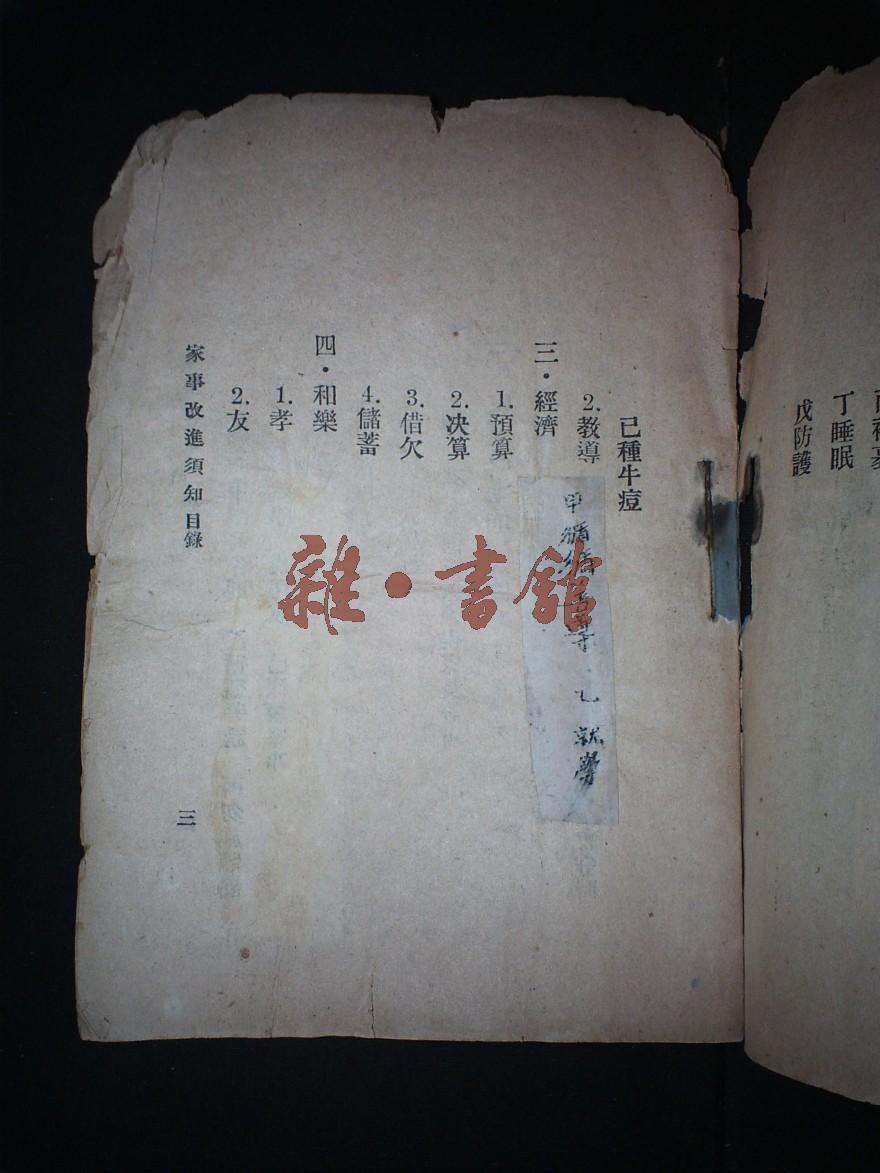 丁睡眠
戊防護
己種牛痘
2.教導
甲
乙 就學
三・經濟
1.預算
2.決算
3.借欠
4.儲蓄
四・和樂
1.孝
2.友
家事改進須知目錄
三
雜・書館